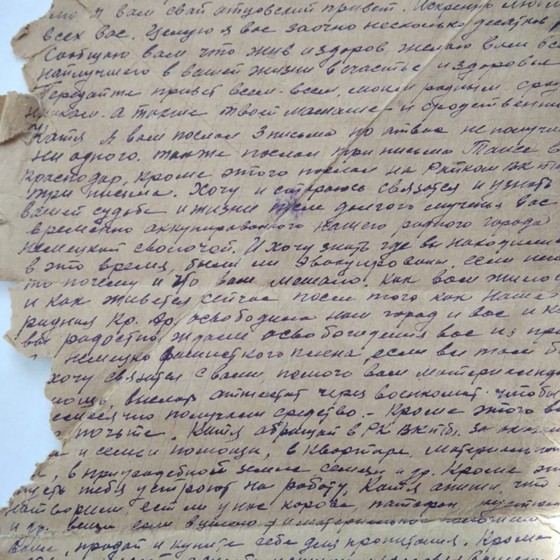 я вам свой отцовский привет. Искренно
всех вас. Целую я вас заочно несколько десятков
Сообщаю вам что жив и здоров желаю вам
наилучшего в вашей жизни в счастье и здоровье
Передайте привет всем-всем, моим родным,
а также твоей мамаше и родственни
Катя я вам послал 3 письма но ответ не получил
ни одного. также послал три письма Таисе в
Краснодар, кроме этого послал на Райком ВКП
три письма. Хочу и стараюсь связатся и узнать
вашей судьбе и жизни после долгого мучения вас
временно аккупированного нашего родного города
немецкой сволочой. И хочу знать где вы находились
в это время, были ли эвакуированы, если нет
то почему и что вам мешало. Как вам жилось
и как живется сейчас после того как наша
родная Кр. Ар. освободила нам город и вас и
вы радостно ждали освобождения вас из
немецко фашистского плена, если вы там
хочу связатся с вами, помочь вам материально
выслал аттестат через военкомат чтобы
семья что получали средство. - Кроме этого
почьте. Катя обращай в РК ВКП(б). за
и семьи помощи, в квартире, материально
, в приусадебной земле семян и др. Кроме
пусть тебя устроют на работу, Катя опиши, что
натворили есть ли у нас корова, патефон, костюм
и др. вещи если
вами, продай и купи себе для пропитания. Кроме